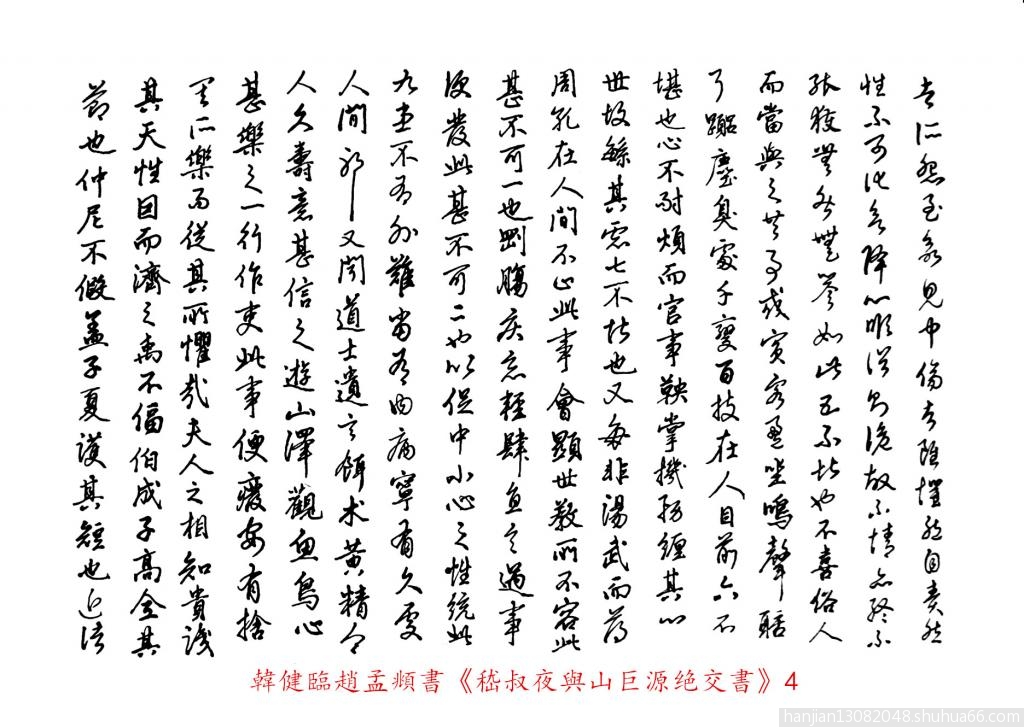 者所怨至欲見中傷者雖懼然自責然
性不可化欲降心順俗則詭故不情亦終不
能獲無咎無譽如此五不堪也不喜俗人
而當與之共事或賓客盈坐鳴聲聒
耳囂塵臭處千變百技在人目前六不
堪也心不耐煩而官事鞅掌機務纏其心
世故繁其慮七不堪也又每非湯武而薄
周孔在人間不止此事會顯世教所不容此
甚不可一也剛腸疾惡輕肆直言遇事
便發此甚不可二也以促中小心之性統此
九患不有外難當有內病寧有久處
人間邪又聞道士遺言餌术黃精令
人久壽意甚信之遊山澤觀魚鳥心
甚樂之一行作吏此事便廢安有捨
其所樂而從其所懼哉夫人之相知貴識
其天性因而濟之禹不偪伯成子高全其
節也仲尼不假盖子夏護其短也近諸
韓健臨趙孟頫書《嵇叔夜與山巨源绝交書》4
hanjian13082048.shuhua66.com